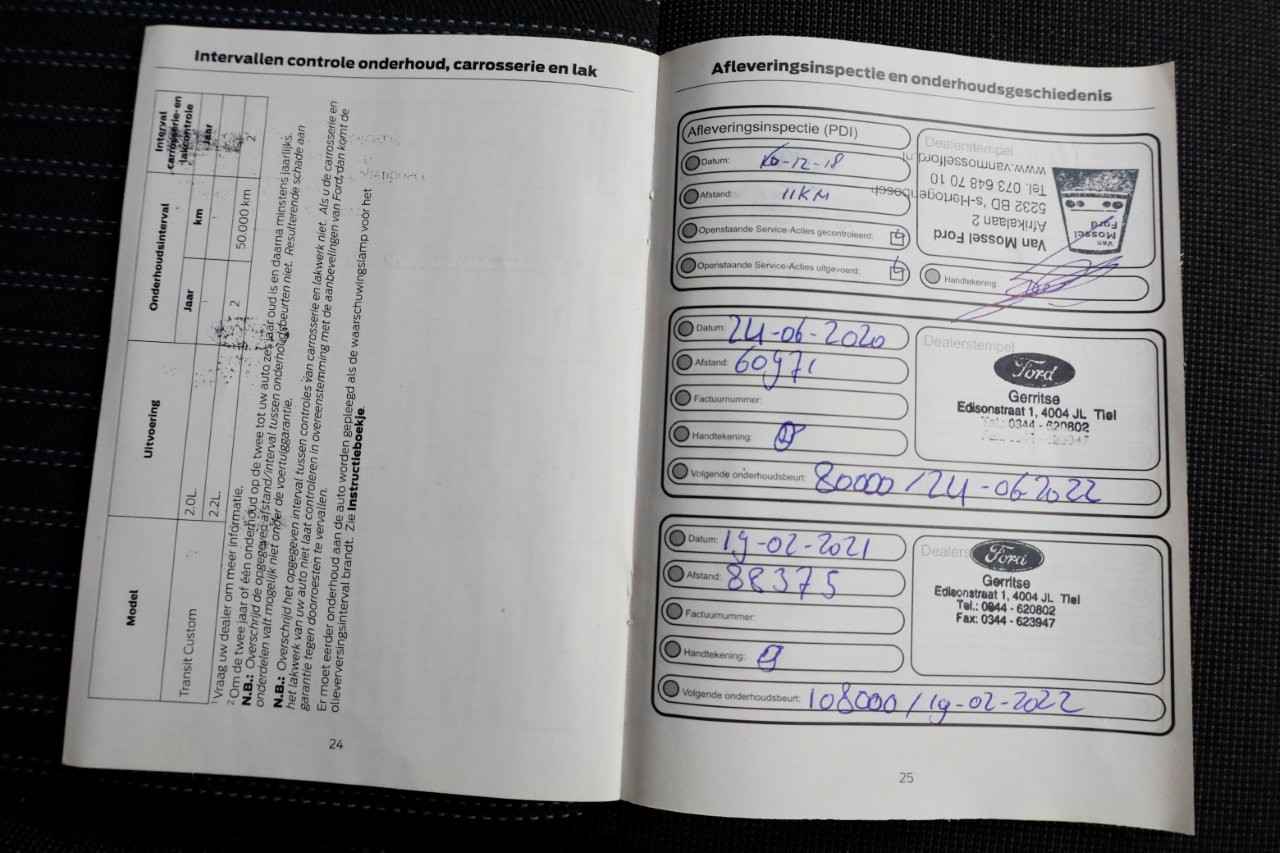 Intervallen controle onderhoud, carrosserie en lak
Model
Uitvoering
Onderhoudsinterval
Interval carrosserie- en lakcontrole
Jaar
km
Jaar
Transit Custom
2.0L.
2
50.000 km
2
2.2L.
1 Vraag uw dealer om meer informatie.
2 Om de twee jaar of één onderhoud op de twee tot uw auto zes jaar oud is en daarna minstens jaarlijks.
N.B.: Overschrijd de opgegeven afstand/interval tussen onderhoudsbeurten niet. Resulterende schade aan
onderdelen valt mogelijk niet onder de voertuiggarantie.
N.B.: Overschrijd het opgegeven interval tussen controles van carrosserie en lakwerk niet. Als u de carrosserie en
het lakwerk van uw auto niet laat controleren in overeenstemming met de aanbevelingen van Ford, dan komt de
garantie tegen doorroesten te vervallen.
Er moet eerder onderhoud aan de auto worden gepleegd als de waarschuwingslamp voor het
olieverversingsinterval brandt. Zie Instructieboekje.
24
Afleveringsinspectie en onderhoudsgeschiedenis
Afleveringsinspectie (PDI)
Datum: -12-18
Afstand: 11KM
Openstaande Service-Acties gecontroleerd:
Openstaande Service-Acties uitgevoerd:
Dealerstempel
Van Mossel Ford
Afrikalaan 2
5232 BD 's-Hertogenbosch
Tel. 073 648 70 10
www.vanmosselford.nl
Van
Mossel
Ford
Handtekening
Datum: 24-06-2020
Afstand: 60971
Factuurnummer:
Handtekening:
Volgende onderhoudsbeurt: 80000 / 24-06 2022
Dealerstempel
Ford
Gerritse
Edisonstraat 1, 4004 JL Tiel
Tel.: 0344 - 620802
Datum: 19-02-2021
Afstand: 88375
Factuurnummer:
Handtekening:
Volgende onderhoudsbeurt: 108000 / 19-02-2022
Ford
Gerritse
Edisonstraat 1, 4004 JL Tiel
Tel.: 0344 - 620802
Fax: 0344 - 623947
25